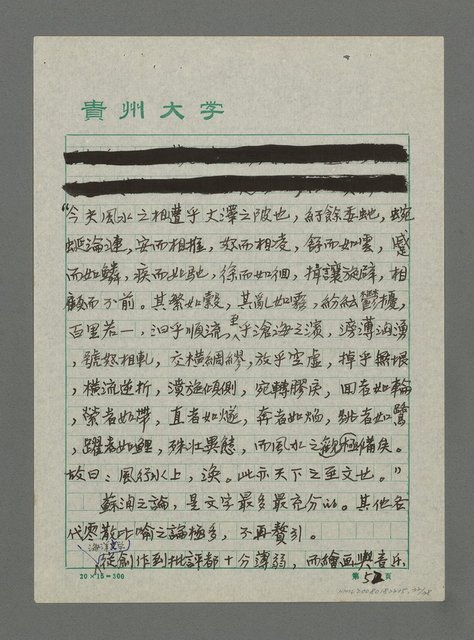 貴州大学
“今夫風水之相遭乎大澤之陂也，紆餘委虵，蜿
蜒淪漣，安而相推，怒而相凌，舒而如雲，蹙
而如鱗，疾而如馳，徐而如徊，揖讓旋辟，相
顧而不前。其繁如縠，其亂如霧，紛紜鬱擾，
百里若一，汩乎順流，至乎滄海之濱，滂薄洶湧
，號怒相軋，交橫綢繆，放乎空虛，掉乎無垠
，橫流逆折，濆旋傾側，宛轉膠戾，回者如輪
，縈者如帶，直者如燧，奔者如焰，跳者如鷺
，躍者如鯉，殊狀異態，而風水之極觀備矣。
故曰：風行水上，渙。此亦天下之至文也。”
蘇洵之論，是文字最多最充分的。其他各
代零散比喻之論極多，不再贅引。
從創作到批評都十分薄弱，而繪画與音乐
20×15=300
第52頁